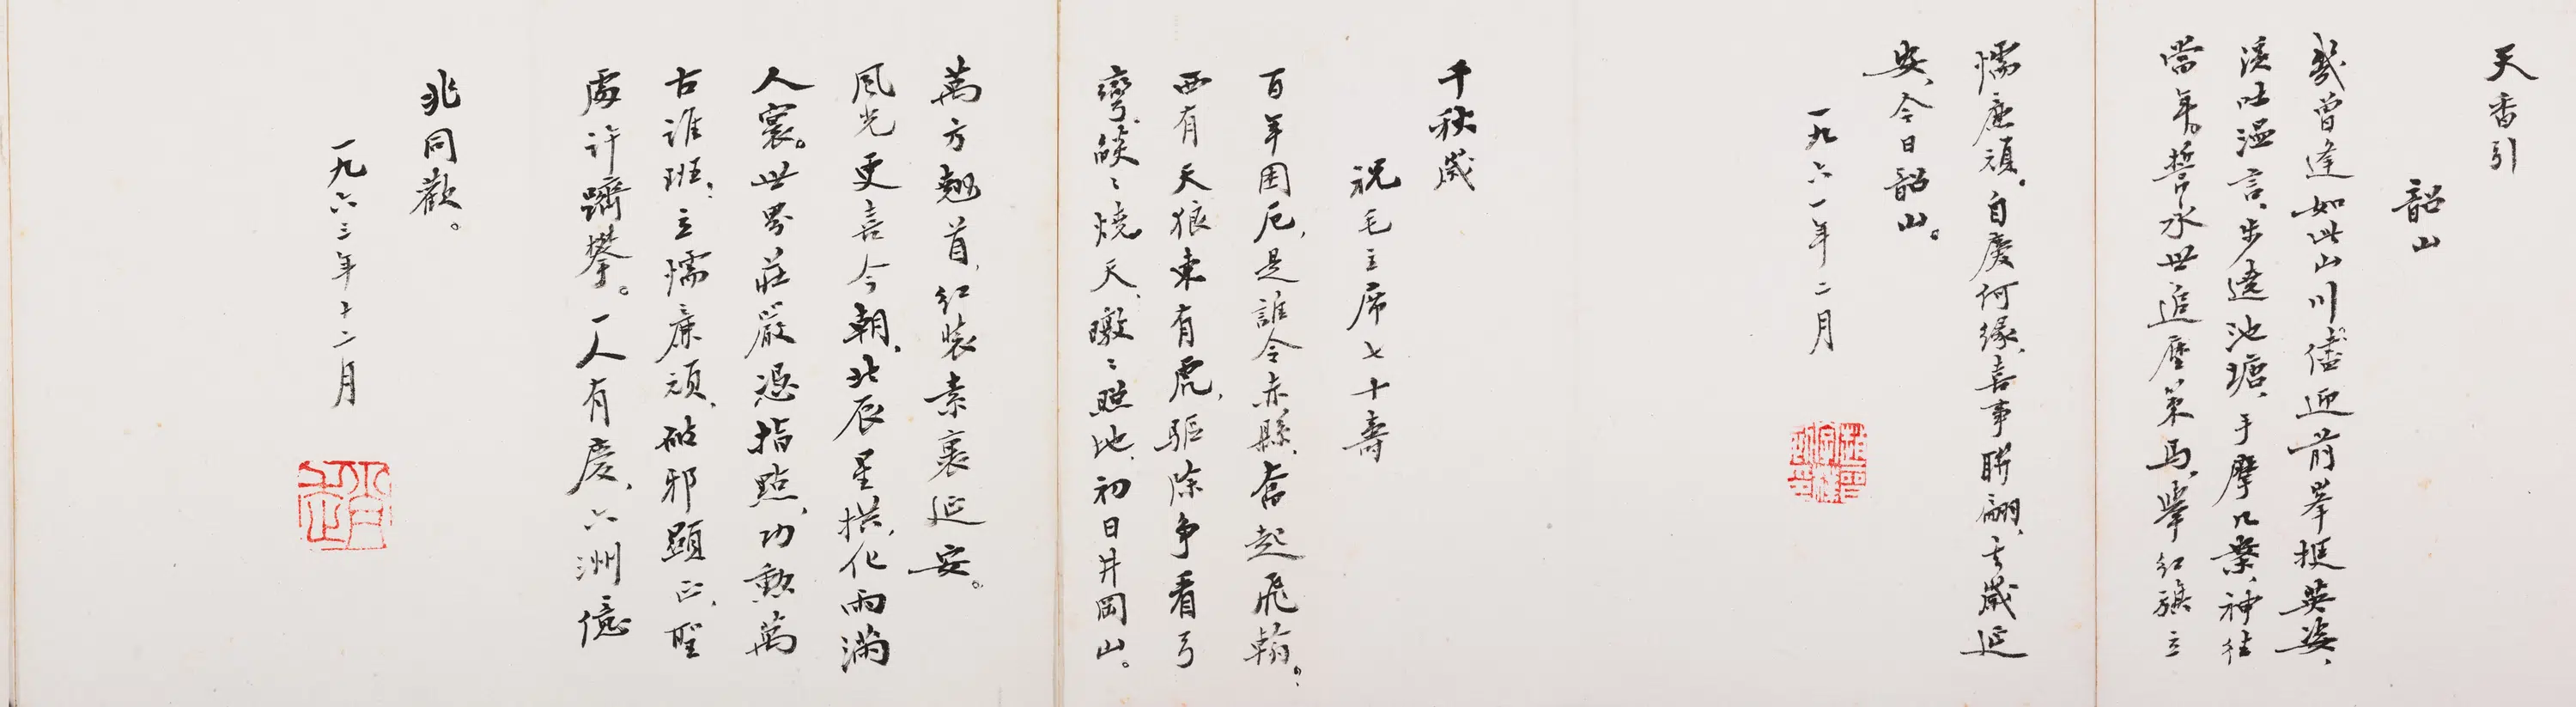 天香引
韶山
幾曾逢如此山川，儘迎前峯挺英姿，
溪吐温言，步遶池塘，手摩几案，神往
當年。誓永世追塵策馬，舉紅旗立
懦廉頑。自慶何緣，喜事聯翩，去歲延
安，今日韶山。
一九六一年二月
千秋歲
祝毛主席七十壽
百年困厄，是誰令赤縣，奮起飛翰。
西有天狼東有虎，驅除争看弓
彎。燄〻燒天，暾〻照地，初日井岡山。
萬方翹首，紅裝素裹延安。
風光更喜今朝，北辰星拱，化雨滿
人寰。世界莊嚴憑指點，功勳萬
古誰班。立懦廉頑，砭邪顯正，聖
處許躋攀。一人有慶，六洲億
兆同歡。
一九六三年十二月
趙